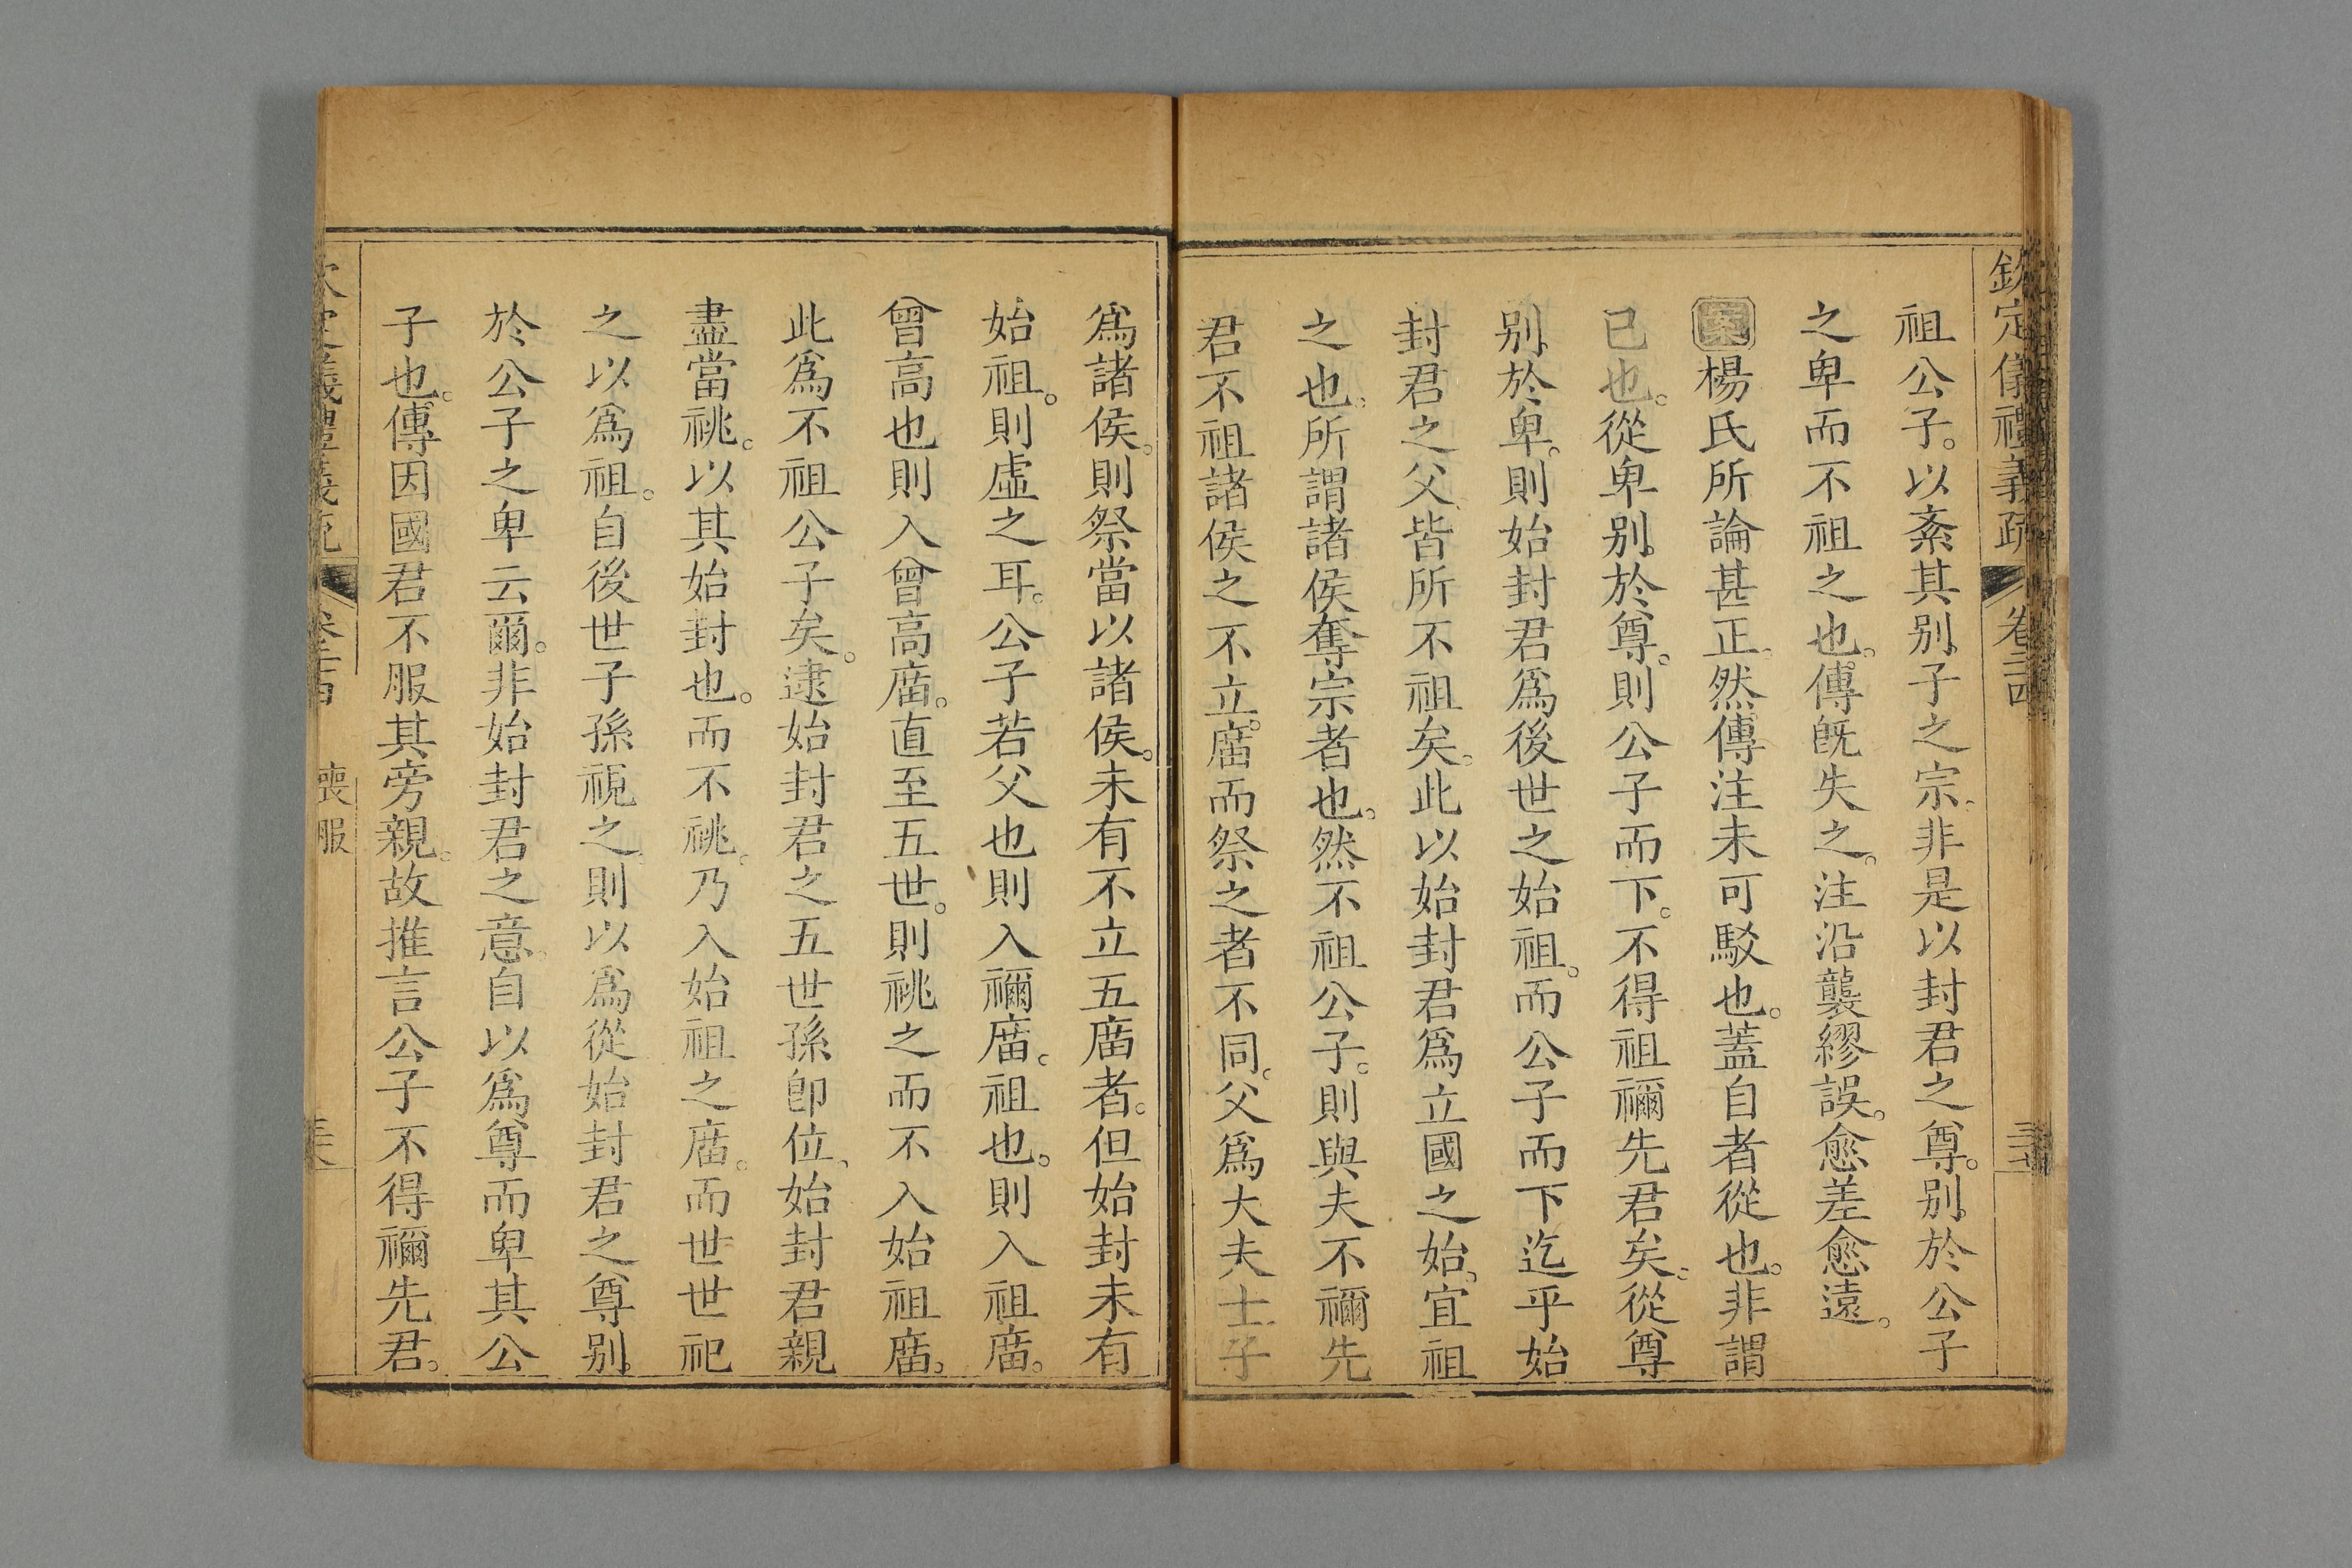 欽定儀禮義疏 卷二十四
祖公子。以紊其别子之宗、非是以封君之尊。别於公子
之卑而不祖之也。傳旣失之。注沿襲繆誤。愈差愈遠。
案楊氏所論甚正。然傳注未可駁也。蓋自者從也。非謂
已也。從卑别於尊。則公子而下。不得祖禰先君矣。從尊
别於卑。則始封君爲後世之始祖。而公子而下迄乎始
封君之父、皆所不祖矣。此以始封君爲立國之始、宜祖
之也。所謂諸侯奪宗者也。然不祖公子。則與夫不禰先
君不祖諸侯之不立廟而祭之者不同。父爲大夫士。子
爲諸侯。則祭當以諸侯。未有不立五廟者。但始封未有
始祖。則虛之耳。公子若父也則入禰廟。祖也。則入祖廟。
曾高也則入曾高廟。直至五世。則祧之而不入始祖廟。
此爲不祖公子矣。逮始封君之五世孫卽位、始封君親
盡當祧。以其始封也。而不祧。乃入始祖之廟。而世世祀
之以爲祖。自後世子孫視之。則以爲從始封君之尊别
於公子之卑云爾。非始封君之意。自以爲尊而卑其公
子也。傳因國君不服其旁親。故推言公子不得禰先君。
喪服